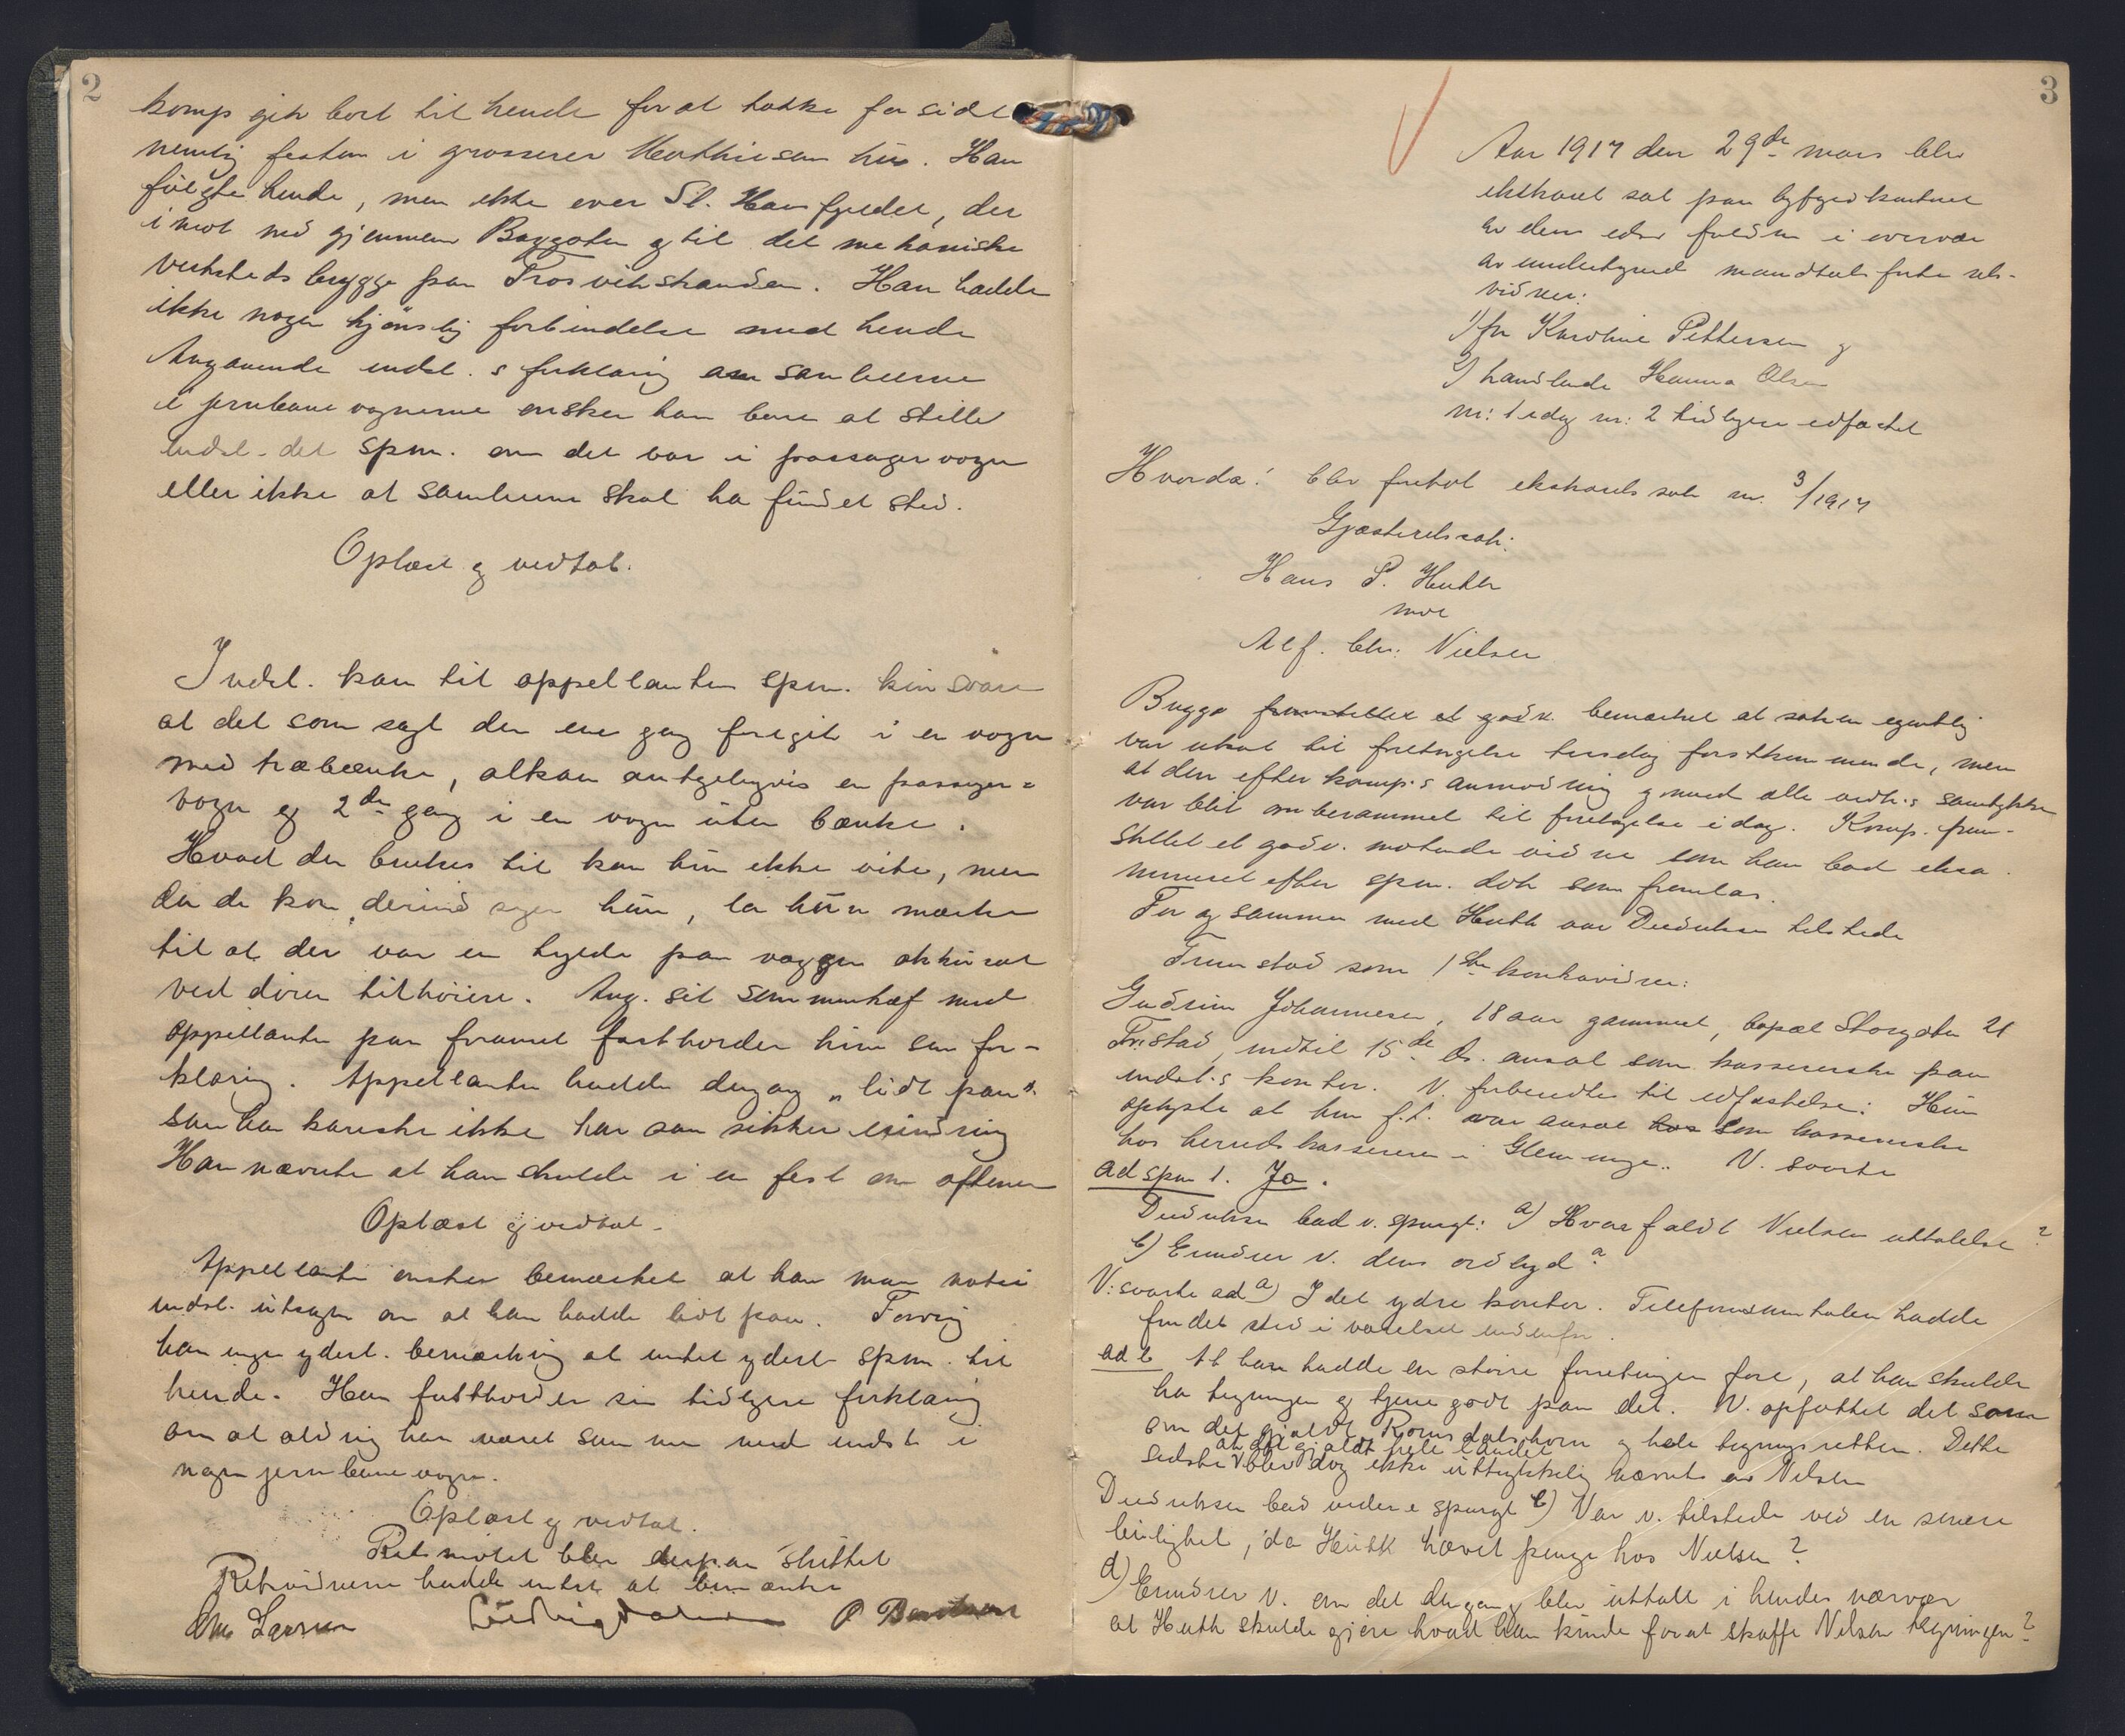 2
komp gik bort til hende for at takke for sidst
nemlig festen i grosserer Mathiesen hus. Han
fulgte hende, men ikke over St. Hansfjeldet, der
imot ned gjennem Baggaten og til det mekaniske
verksteds brygge paa Trosvikstranden. Han hadde
ikke nogen kjønslig forbindelse med hende
Angaaende indst.s forklaring om samleiene
i jernbanevognerne ønsker han bare at stille
indst. det spm. om det var i passager vogn
eller ikke at samleiene skal ha fundet sted.
Oplæst og vedtat.
Indst. kan til appellanten spm. kun svare
at det som sagt den ene gang foregik i en vogn
med træbænke, altsaa antageligvis en passager=
vogn og 2den gang i en vogn uten bænke.
Hvad den brukes til kan hun ikke vite, men
da de kom derind siger hun, la hun mærke
til at der var en hylde paa væggen akkurat
ved døren tilhøire. Ang. sit sammenhæf med
appellanten paa foranret fastholder hun sin for-
klaring. Appellanten hadde dengang "lidt paa"
saa han kanske ikke har saa sikker erindring
Han nævnte at han skulde i en fest om aftenen
Oplæst og vedtat.
Appellanten ønsker bemærket at han maa notere
indst. utsagn om at han hadde lidt paa. Forøvrig
har ingen yderl. bemærkning at intet yderl. spm. til
hende. Han fastholder sin tidligere forklaring
om at aldrig han været sammen med indst i
nogen jernbanevogn.
Oplæst og vedtat.
Retsmøtet blev derpaa sluttet
Retsvidnerne hadde intet at bemærke
Chr Larsen O Berntsen
3
Aar 1917 den 29de mars blev
ekstraret sat paa byfogedkontoret
av dens edsv fuldm i overvær
av undertegnede mandtalsførte rets-
vidner:
1) fru Karoline Pettersen og
2) handlende Hanna Olsen
nr: 1 idag nr: 2 tidligere edfæstet
Hvorda: blev foretat ekstraretssak nr. 3/1917
Gjæsteretssak:
Hans P. Huth
mot
Alf. Chr. Nielsen
Bugge fremstillet et godv. bemærket at saken egentlig
var utsat til foretagelse tirsdag førstkommende, men
at den efter komp.s anmodning og med alle vedk.s samtykke
var blit omberammet til foretagelse idag. Komp. frem-
stillet et godv. møtende vidne som han bad eksa
mineret efter spm. dok som fremlas.
For og sammen med Huth var Diedriksen tilstede
Fremstod som 1ste kontravidne:
Gudrun Johannesen, 18 aar gammel, bopæl Storgaten 21
Fr.stad, indtil 15de ds. ansat som kassererske paa
indst.s kontor. V. forberedtes til edfæstelse: Hun
oplyste at hun f.t. var ansat hos som kassererske
hos herredskassereren i Glemminge. V. svarte
ad spm 1. Ja.
Diedriksen bad v. spurgt: a) Hvor faldt Nielsen uttalelse?
b) Erindrer v. dens ordlyd?
V: svarte ad a) I det ydre kontor. Telefonsamtalen hadde
fundet sted i værelset indenfor.
ad b At han hadde en større forretningen fore, at han skulde
ha tegningen og tjene godt paa det. V. opfattet det som
om det gjaldt Romsdalshorn og hele tegningsretten. Dette
at det gjaldt hele landet
sidste v blev dog ikke uttrykkelig nævnt av Nilsen
Diedriksen bad videre spurgt c) Var v. tilstede ved en senere
leilighet, da Huth hævet penge hos Nielsen?
d) Erindrer v. om det dengang blev uttalt i hendes nærvær
at Huth skulde gjøre hvad han kunde for at skaffe Nilsen tegningen?